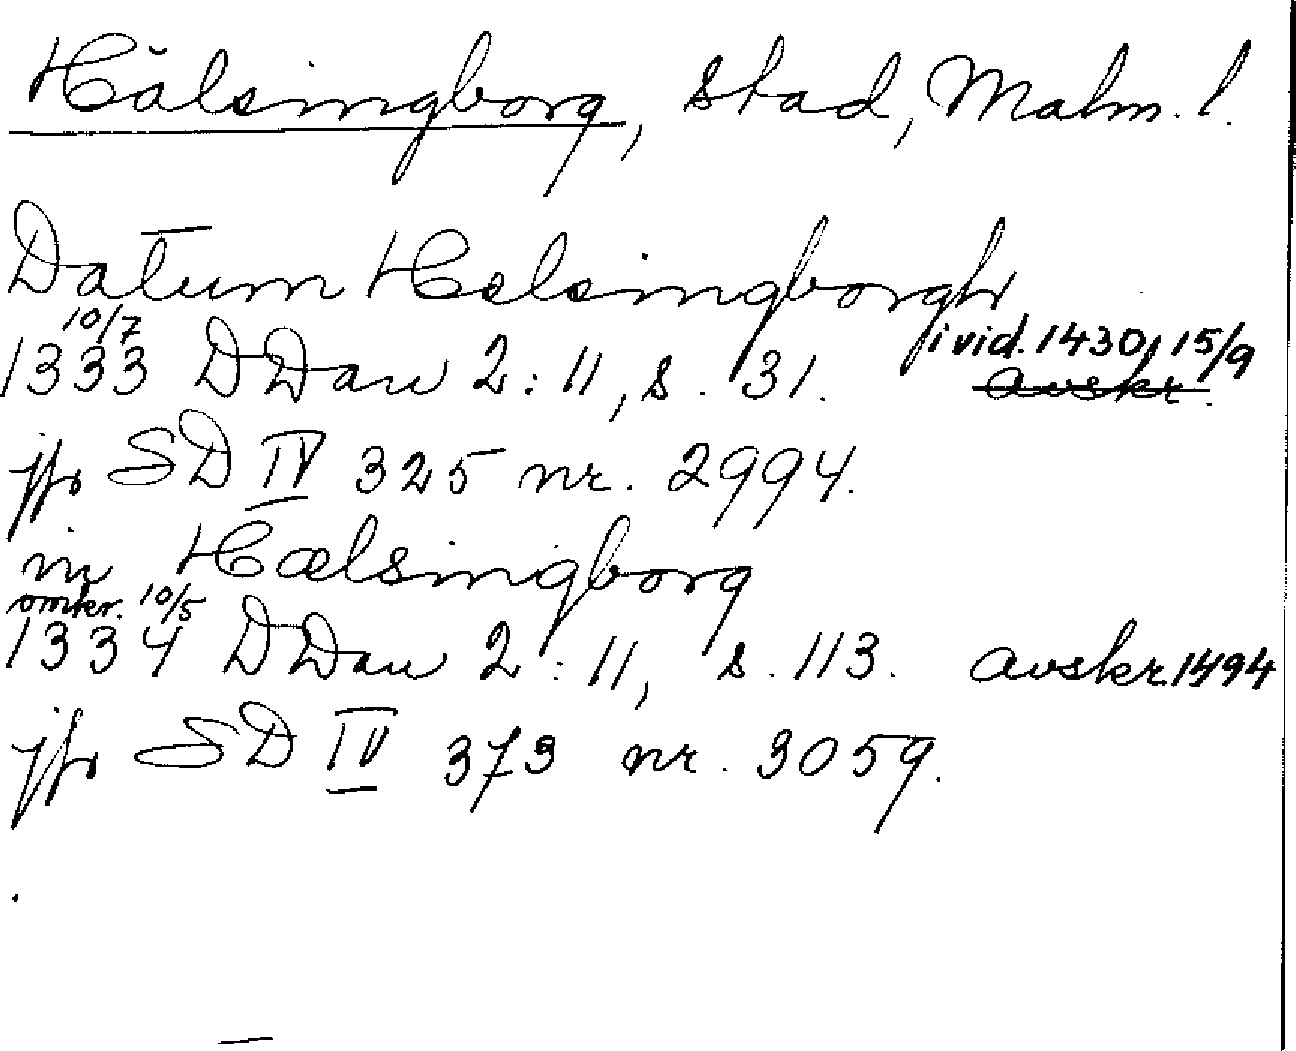 Hälsingborg, stad, Malm. l.
Datum Helsingborgh
10/7
1333 DDan 2:11, s. 31. i vid. 1430, 15/9
avskr.
jfr SD IV 325 nr. 2994.
in Hælsingborg
omkr. 10/5
1334 DDan 2:11, s. 113. avskr 1494
jfr SD IV 373 nr. 3059.